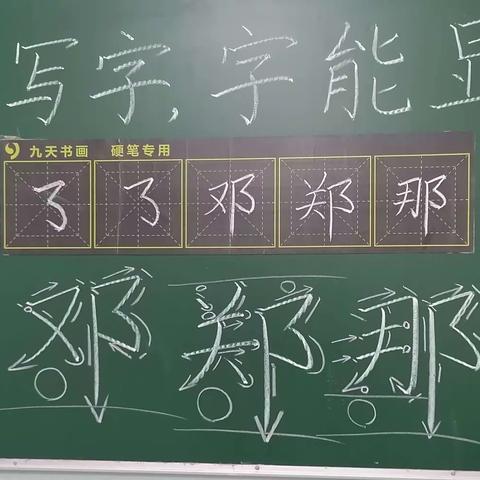 写字,字能
九天书画 硬笔专用
了 了 邓 郑 那
邓 郑 那